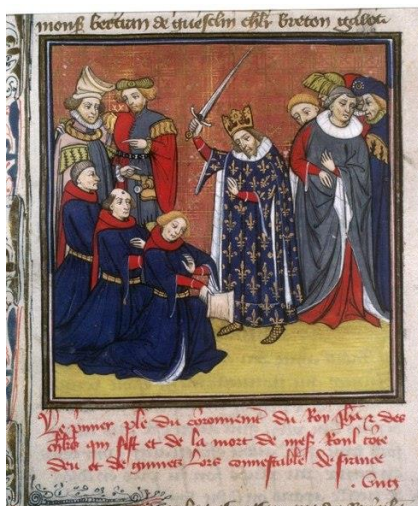 mons bertran de guesclin chlr breton
Le pmier ple du coronnement du Roy Jha & des
chlrs qui fist et de la mort de mes Roul cote
deu et de guines Lors connestable de france